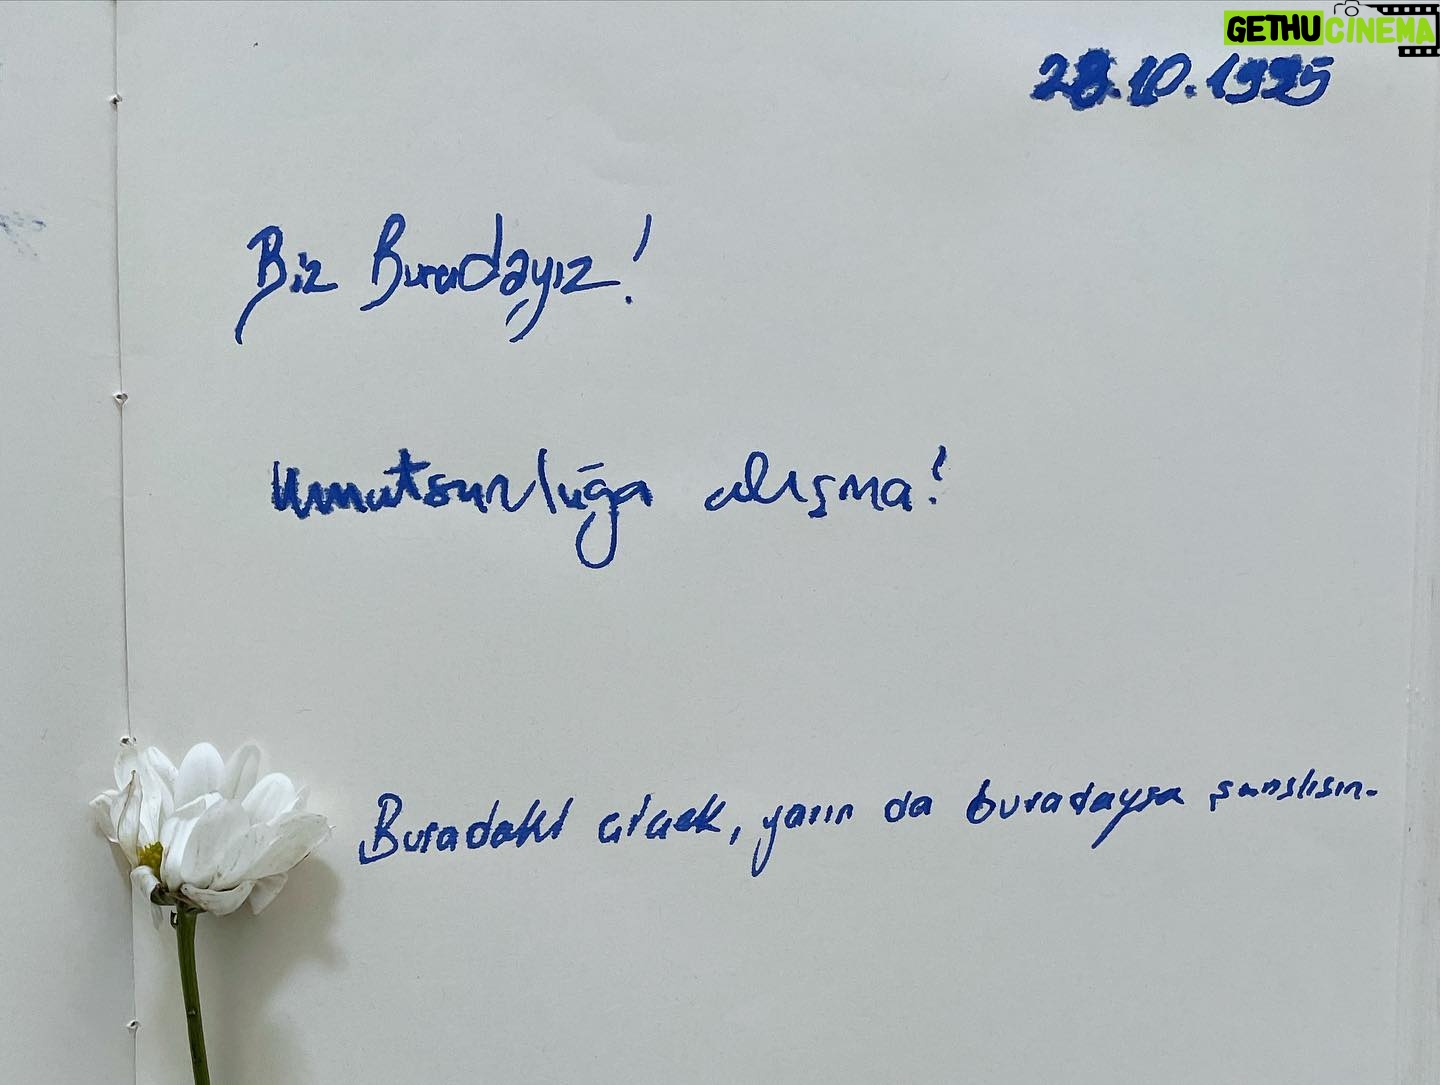 GETHUCINEMA
28.10.1995
Biz Buradayız!
Umutsuzluğa alışma!
Buradaki çiçek, yarın da buradaysa şanslısın.